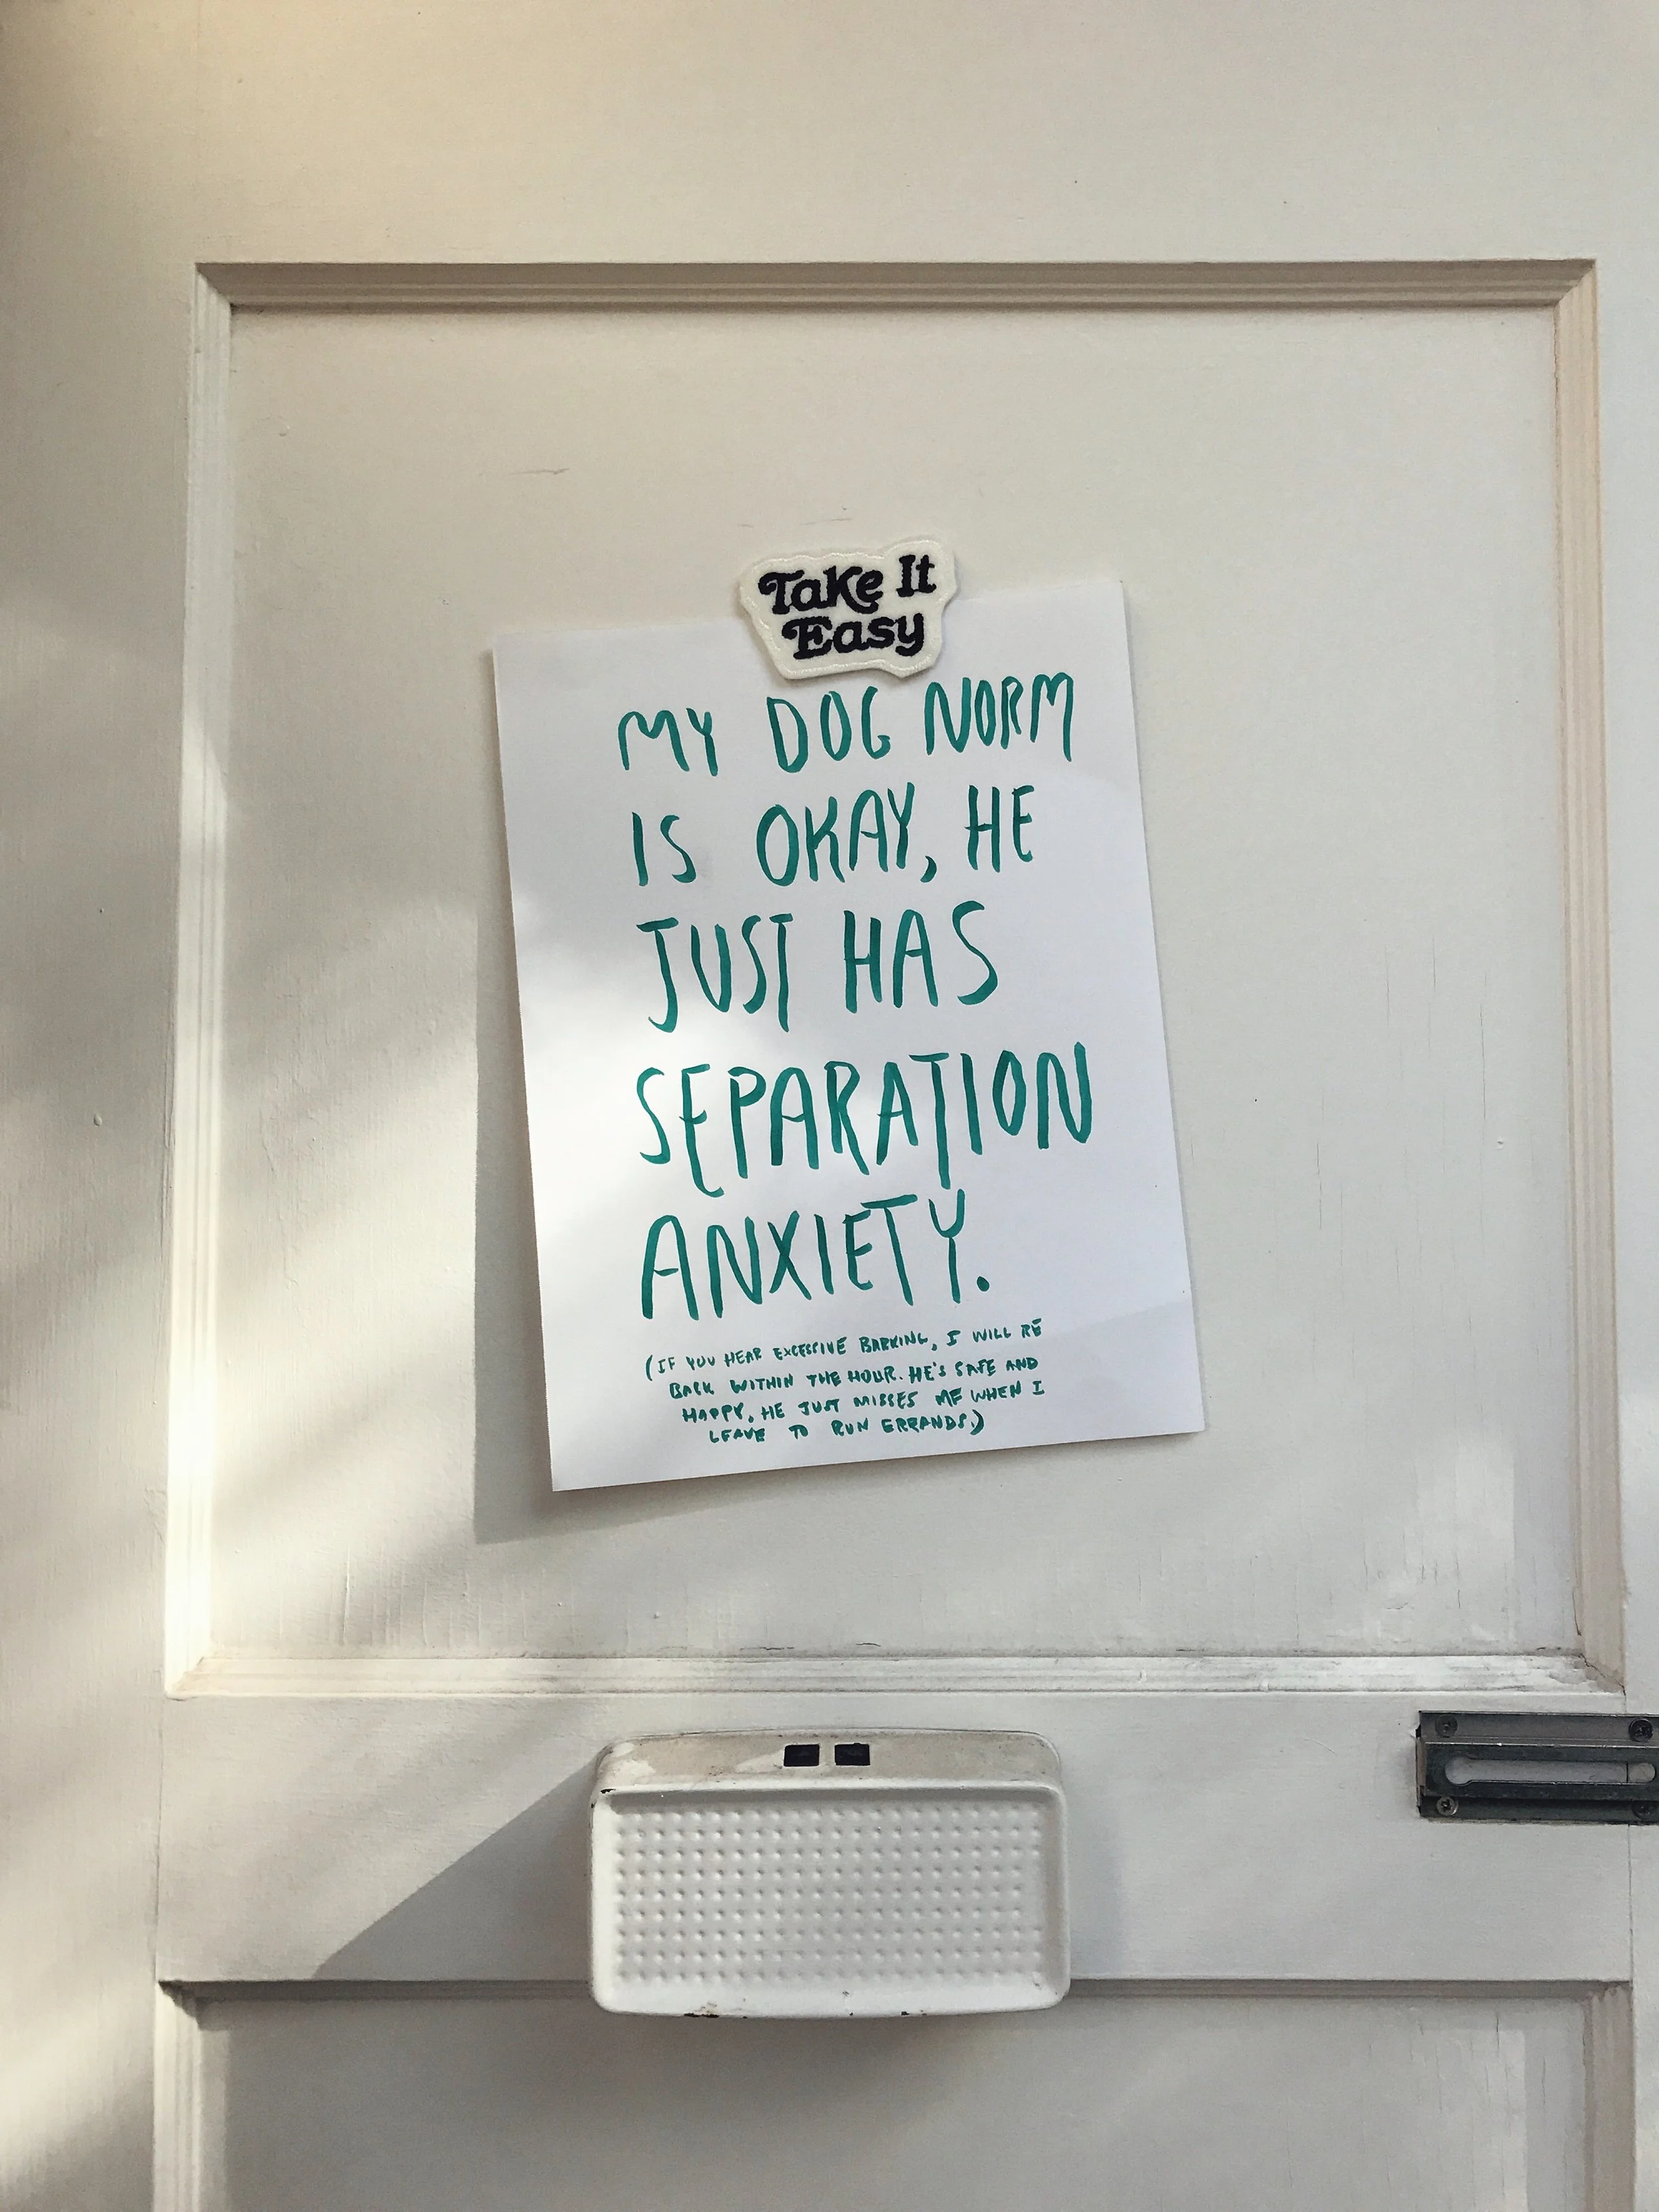 Take It
Easy
MY DOG NORM
IS OKAY, HE
JUST HAS
SEPARATION
ANXIETY.
(IF YOU HEAR EXCESSIVE BARKING, I WILL BE
BACK WITHIN THE HOUR. HE'S SAFE AND
HAPPY, HE JUST MISSES ME WHEN I
LEAVE TO RUN ERRANDS.)